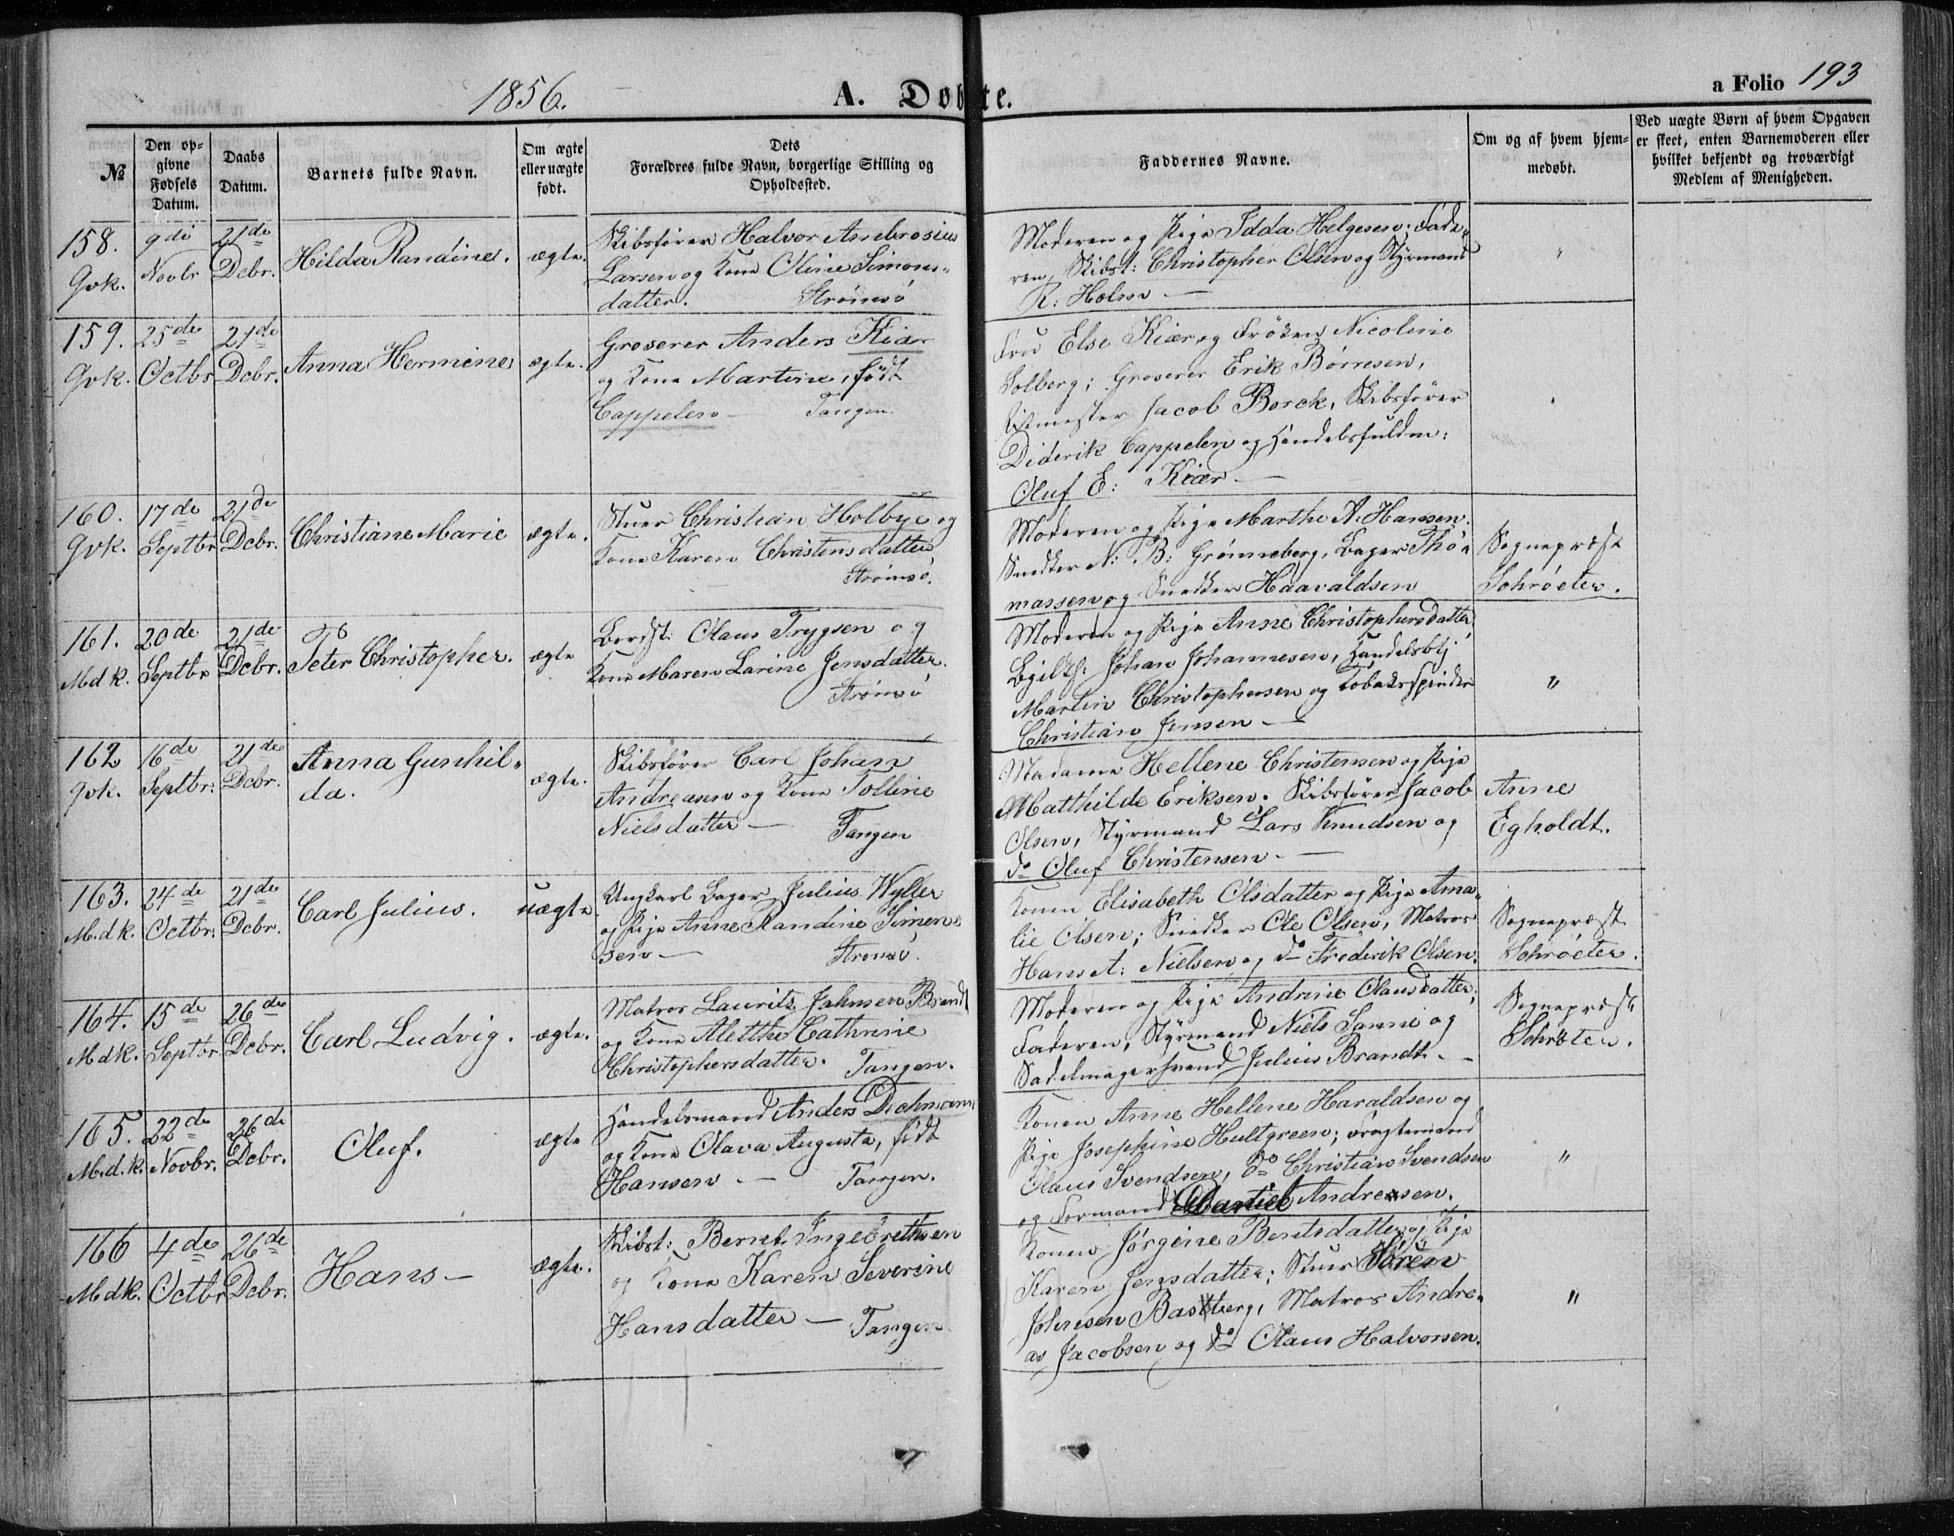 1856.
A. Døbte.
a Folio 193
№
Den opgivne Fødsels Datum.
Daabs Datum.
Barnets fulde Navn.
Om ægte eller uægte født.
Dets Forældres fulde Navn, borgerlige Stilling og Opholdssted.
Faddernes Navne.
Om og af hvem hjemmedøbt.
Ved uægte Børn af hvem Opgaven er skeet, enten Barnemoderen eller hvilket bekjendt og troværdigt Medlem af Menigheden.
158. Qvk.
9di Novbr
21de Dcbr.
Hilda Randine.
ægte.
Skibsfører Halvor Ambrosius
Larsen og Kone Oline Simons-
datter. Strømsø
Moderen og Pige Idda Helgesen; Fade-
ren, Skibst: Christopher Olsen og Styrmand
R: Holm —
"
159. Qvk.
25de Octbr
21de Dcbr.
Anna Hermine
ægte.
Groserer Anders Kiær
og Kone Martine, født
Cappelen — Tangen.
Fru Else Kiær og Frøken Nicoline
Solberg; Groserer Erik Børresen,
Jacob Borck, Skibsfører
Diderik Cappelen og Handelsfuldm:
Oluf E: Kiær —
160. Qvk.
17de Septbr
21de Dcbr.
Christiane Marie
ægte.
Stuer Christian Holbye og
Kone Karen Christensdatter
Strømsø.
Moderen og Pige Marthe A. Hansen.
Snedker N: B: Grønneberg, Bager Tho-
massen og Snedker Haavaldsen
Sognepræst
Schrøeter.
161. Mdk.
20de Septbr
21de Dcbr.
Peter Christopher.
ægte
Bordst: Olaus Trygsen og
Kone Maren Larine Jensdatter.
Strømsø
Moderen og Pige Anne Christophersdatter,
Johan Johannesen, Handelsbtj
Martin Christophersen og Tobaksspinder
Christian Jensen —
"
162 Qvk.
16de Septbr:
21de Dcbr.
Anna Gunhil-
da.
ægte.
Skibsfører Carl Johan
Andreasen og Kone Tolline
Nielsdatter — Tangen
Madame Hellene Christensen og Pige
Matthilde Eriksen. Skibsfører Jacob
Olsen, Styrmand Lars Knudsen og
do Oluf Christensen. —
Anne
Egholdt.
163. M.dk.
24de Octbr:
21de Dcbr.
Carl Julius.
uægte
Ungkarl Bager Julius Wyller
og Pige Anne Randine Simen-
sen — Strømsø.
Konen Elisabeth Olsdatter og Pige Ama-
lie Olsen; Snedker Ole Olsen, Matros
Hans A: Nielsen og do Frederik Olsen.
Sognepræst
Schrøeter.
164. Mdk.
15de Septbr
26de Dcbr.
Carl Ludvig.
ægte.
Matros Laurits Jahnsen Brandt
og Kone Alethe Cathrine
Christophersdatter. Tangen.
Moderen og Pige Andrine Olausdatter;
Faderen, Styrmand Niels Sanne og
Sadelmagersvend Julius Brandt. —
Sognepræst
Schrøter.
165. M.d.k.
22de Novbr.
26de Dcbr.
Oluf.
ægte
Handelsmand Anders Diehmann
og Kone Olava Augusta, født
Hansen. — Tangen.
Konen Anne Hellene Haraldsen og
Pige Josephine Hultgreen; Dragtemand
Olaus Svendsen, do Christian Svendsen
og Formand Daniel Andresen.
"
166 Mdk.
4de Octbr
26de Dcbr.
Hans —
ægte.
Skibst: Bernt Ingebrethsen
og Kone Karen Severine
Hansdatter — Tangen
Konen Jørgine Berntsdatter og Pige
Karen Jensdatter; Stuer Søren
Johnsen Bastberg, Matros Andre-
as Jacobsen og do Olaus Halvorsen.
"